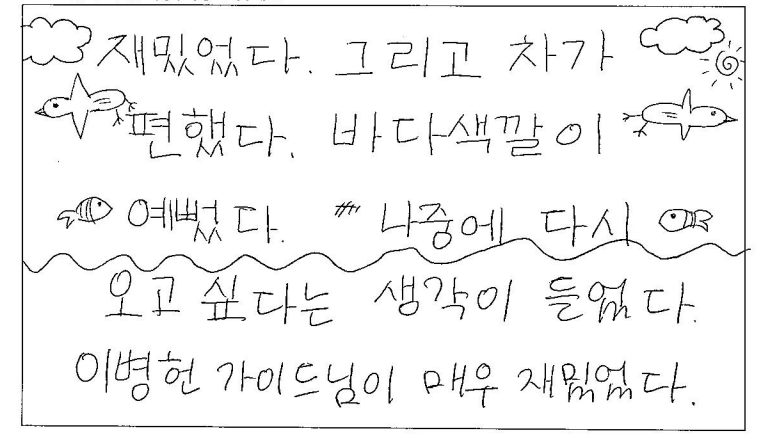 재밌었다. 그리고 차가
편했다. 바다색깔이
예뻤다. 나중에 다시
오고 싶다는 생각이 들었다.
이병헌 가이드님이 매우 재밌었다.